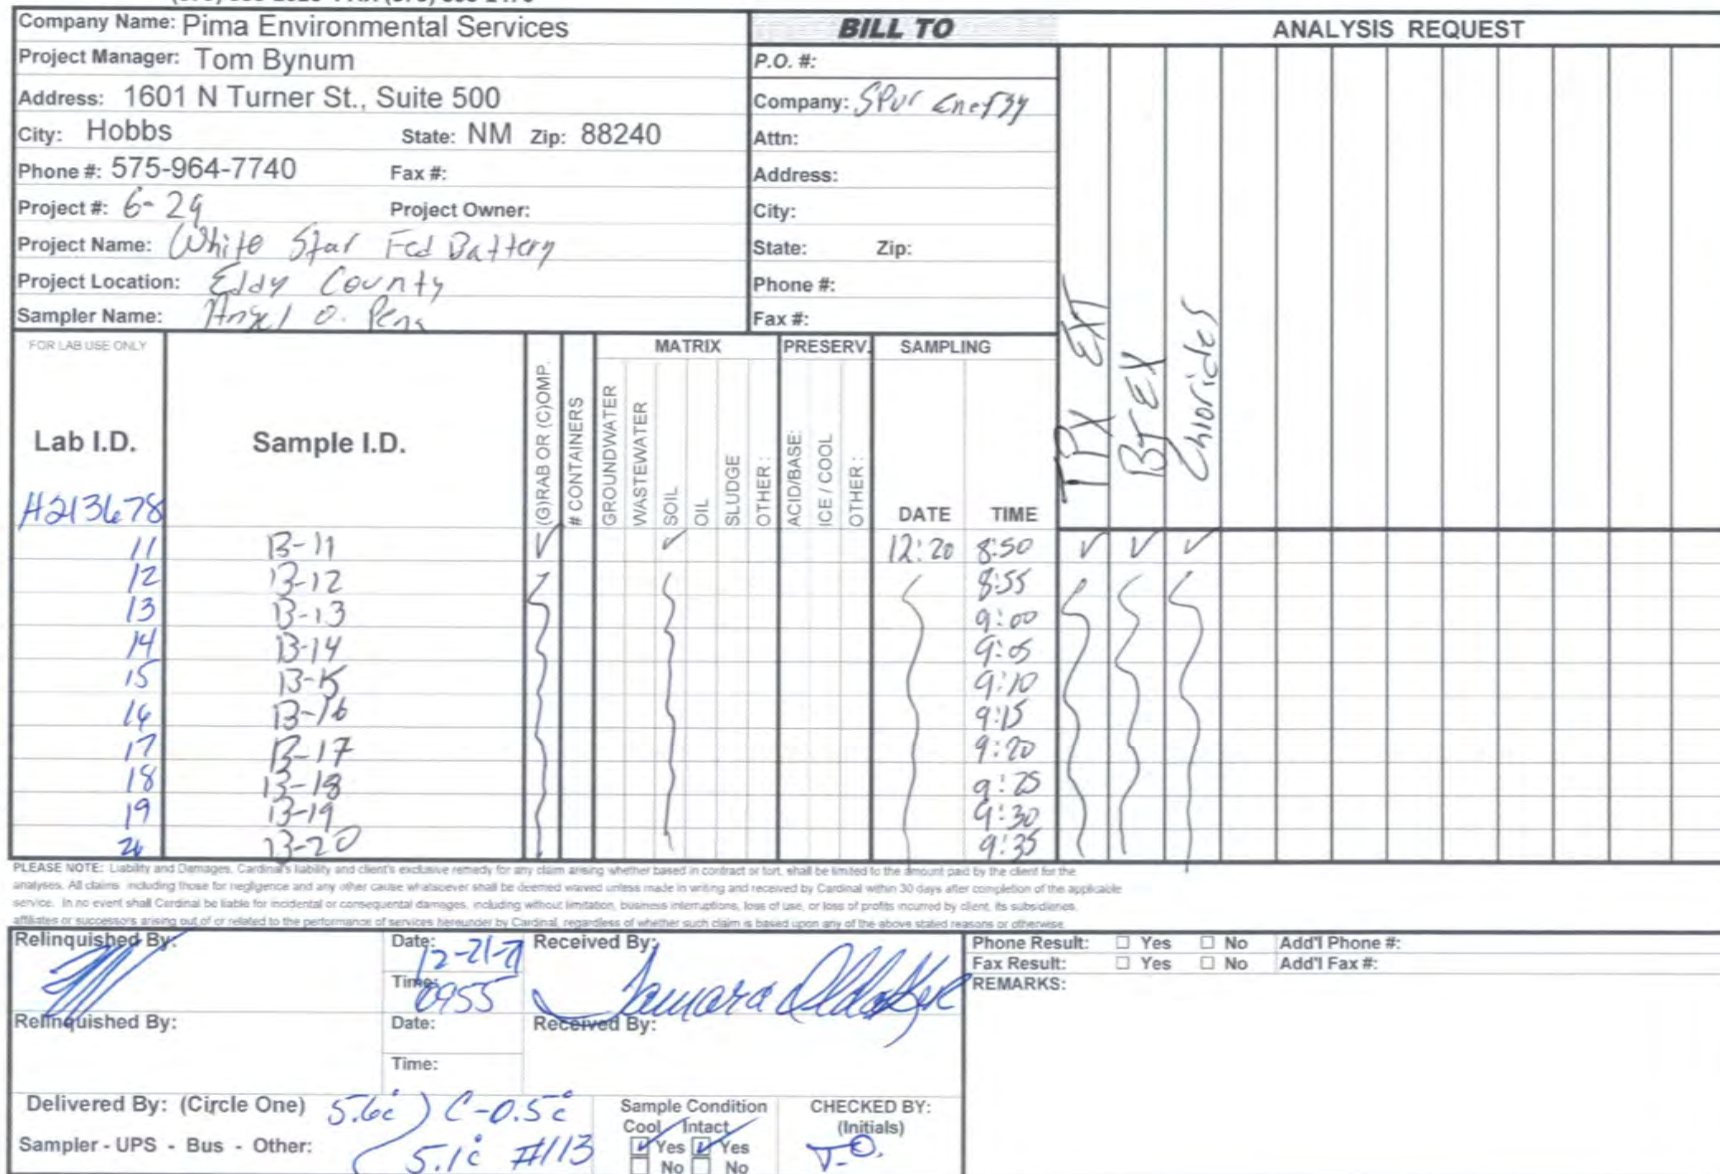 Company Name: Pima Environmental Services
BILL TO
ANALYSIS REQUEST
Project Manager: Tom Bynum
P.O. #:
Address: 1601 N Turner St., Suite 500
Company: Spur Energy
City: Hobbs State: NM Zip: 88240
Attn:
Phone #: 575-964-7740 Fax #:
Address:
Project #: 6-29 Project Owner:
City:
Project Name: White Star Fed Battery
State: Zip:
Project Location: Eddy County
Phone #:
Sampler Name: Angel O. Pena
Fax #:
TPX EXT
BTEX
Chlorides
FOR LAB USE ONLY
MATRIX PRESERV. SAMPLING
Lab I.D.
Sample I.D.
(G)RAB OR (C)OMP.
# CONTAINERS
GROUNDWATER
WASTEWATER
SOIL
OIL
SLUDGE
OTHER :
ACID/BASE:
ICE / COOL
OTHER :
DATE TIME
H213678
11 B-11 12:20 8:50
12 B-12 8:55
13 B-13 9:00
14 B-14 9:05
15 B-15 9:10
16 B-16 9:15
17 B-17 9:20
18 B-18 9:25
19 B-19 9:30
20 B-20 9:35
PLEASE NOTE: Liability and Damages. Cardinal's liability and client's exclusive remedy for any claim arising whether based in contract or tort, shall be limited to the amount paid by the client for the
analyses. All claims including those for negligence and any other cause whatsoever shall be deemed waived unless made in writing and received by Cardinal within 30 days after completion of the applicable
service. In no event shall Cardinal be liable for incidental or consequental damages, including without limitation, business interruptions, loss of use, or loss of profits incurred by client, its subsidiaries,
affiliates or successors arising out of or related to the performance of services hereunder by Cardinal, regardless of whether such claim is based upon any of the above stated reasons or otherwise.
Relinquished By:
Date: 12-21-21
Received By: Tamara Oldaker
Time: 0955
Phone Result: Yes No Add'l Phone #:
Fax Result: Yes No Add'l Fax #:
REMARKS:
Relinquished By:
Date:
Received By:
Time:
Delivered By: (Circle One) 5.6c C-0.5c
Sampler - UPS - Bus - Other: 5.1c #113
Sample Condition
Cool Intact
Yes Yes
No No
CHECKED BY:
(Initials)
T.O.